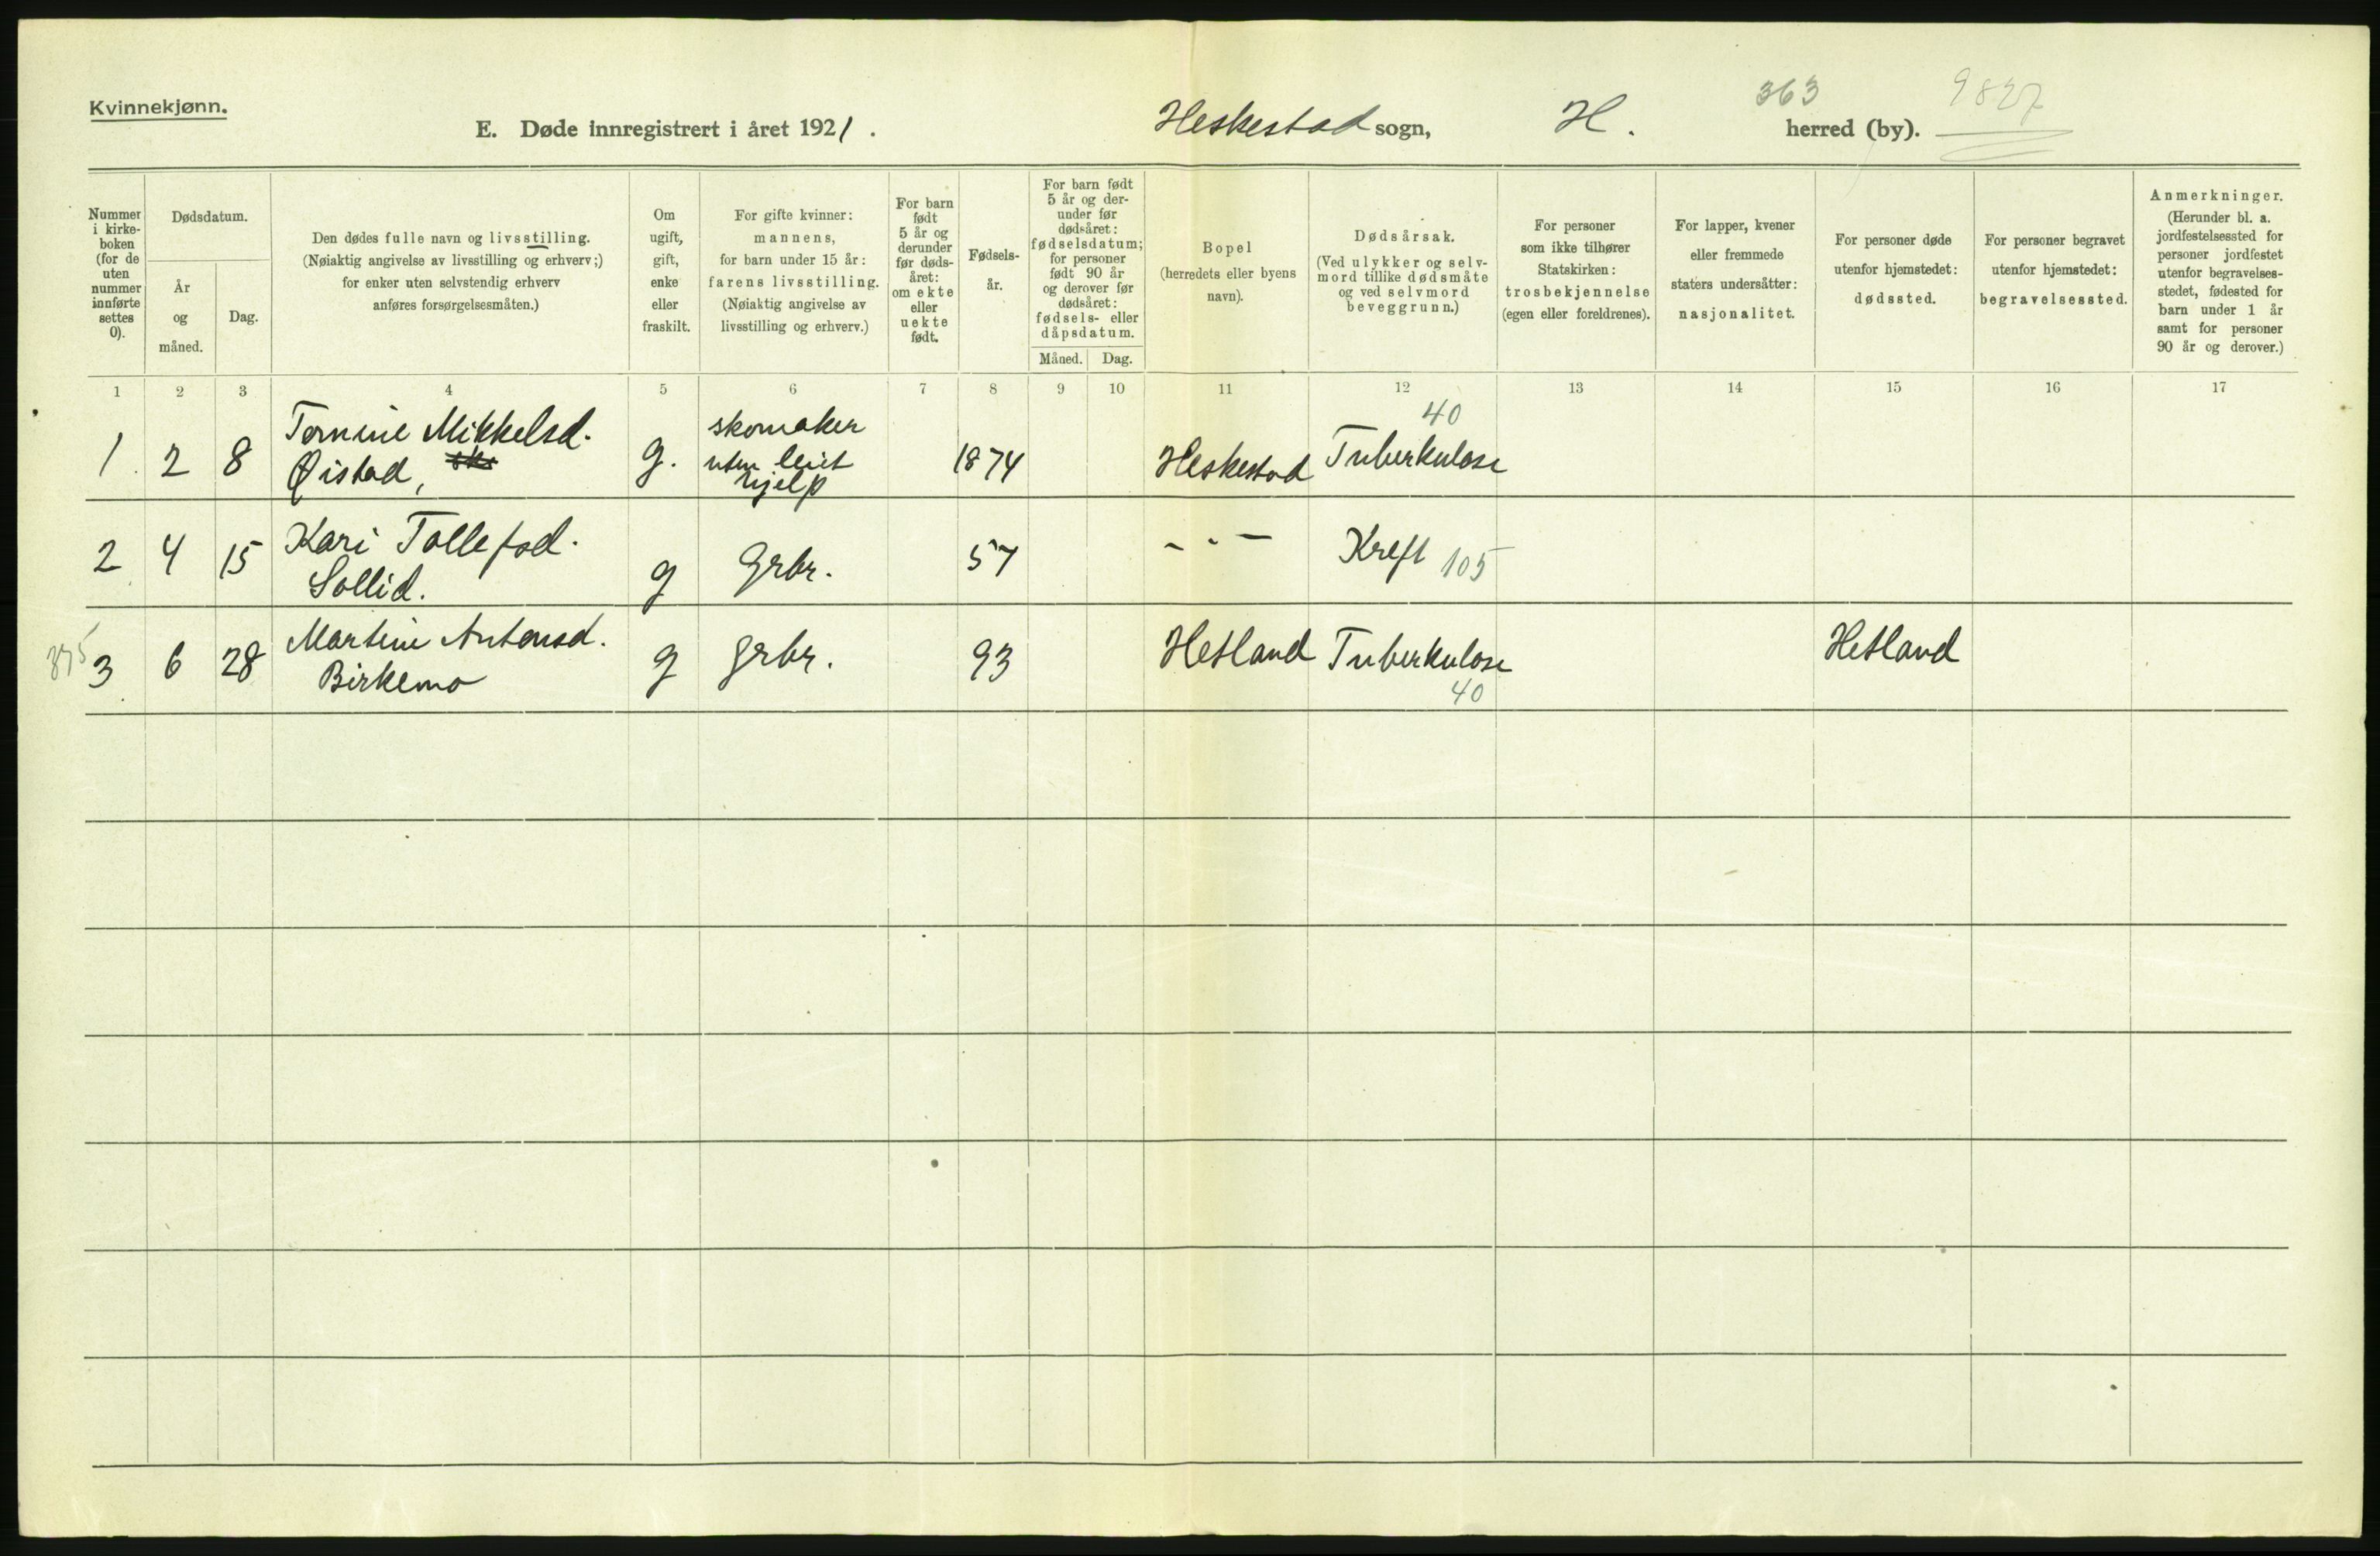 Kvinnekjønn.
E. Døde innregistrert i året 1921.
Heskestad sogn,
H.
363
herred (by).
9827
Nummer
i kirke-
boken
(for de
uten
nummer
innførte
settes
0).
Dødsdatum.
År
og
måned.
Dag.
Den dødes fulle navn og livsstilling.
(Nøiaktig angivelse av livsstilling og erhverv;)
for enker uten selvstendig erhverv
anføres forsørgelsesmåten.)
Om
ugift,
gift,
enke
eller
fraskilt.
For gifte kvinner:
mannens,
for barn under 15 år:
farens livsstilling.
(Nøiaktig angivelse av
livsstilling og erhverv.)
For barn
født
5 år og
derunder
før døds-
året:
om ekte
eller
uekte
født.
Fødsels-
år.
For barn født
5 år og der-
under før
dødsåret:
fødselsdatum;
for personer
født 90 år
og derover før
dødsåret:
fødsels- eller
dåpsdatum.
Måned. Dag.
Bopel
(herredets eller byens
navn).
Dødsårsak.
(Ved ulykker og selv-
mord tillike dødsmåte
og ved selvmord
beveggrunn.)
For personer
som ikke tilhører
Statskirken:
trosbekjennelse
(egen eller foreldrenes).
For lapper, kvener
eller fremmede
staters undersåtter:
nasjonalitet.
For personer døde
utenfor hjemstedet:
dødssted.
For personer begravet
utenfor hjemstedet:
begravelsessted.
Anmerkninger.
(Herunder bl. a.
jordfestelsessted for
personer jordfestet
utenfor begravelses-
stedet, fødested for
barn under 1 år
samt for personer
90 år og derover.)
1 2 3 4 5 6 7 8 9 10 11 12 13 14 15 16 17
1. 2 8
Tomine Mikkelsd.
Øistad,
g.
skomaker
uten leiet
hjelp
1874
Heskestad
40
Tuberkulose
2 4 15
Kari Tollefsd.
Sollid.
g
Grbr.
57
- " -
Kreft 105
375
3 6 28
Martine Antonsd.
Birkemo
g
grbr.
93
Hetland
Tuberkulose
40
Hetland